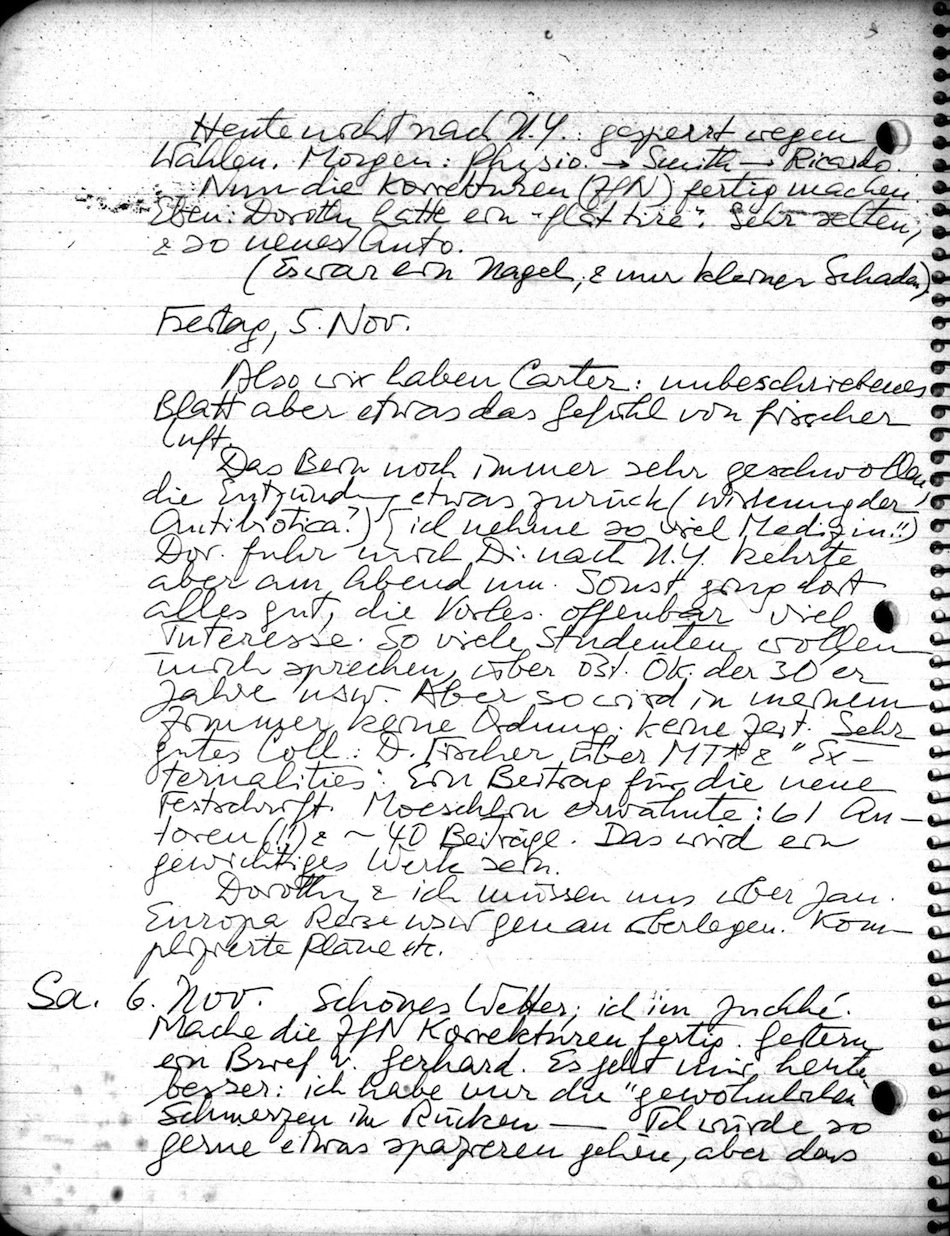 Heute nicht nach N.Y.: gesperrt wegen
Wahlen. Morgen: Physio. → Smith → Ricardo.
Nun die Korrekturen (ZfN) fertig machen.
Eben: Dorothy hatte ein "flat tire". Sehr selten,
& so neues Auto.
(Es war ein Nagel, & nur kleiner Schaden)
Freitag, 5. Nov.
Also wir haben Carter: unbeschriebenes
Blatt aber etwas das Gefühl von frischer
Luft.
Das Bein noch immer sehr geschwollen,
die Entzündung etwas zurück (Wirkung der
Antibiotica?) (ich nehme so viel Medizin!!)
Dor. fuhr mich Di. nach N.Y. kehrte
aber am Abend um. Sonst ging dort
alles gut, die Vorles. offenbar viel
Interesse. So viele Studenten wollen
mich sprechen, über öst. Ök. der 30er
Jahre usw. Aber so wird in meinem
Zimmer keine Ordnung. Keine Zeit. Sehr
gutes Coll.: D. Fischer über MTA & "Ex-
ternalities: Ein Beitrag für die neue
Festschrift. Moeschlin erwähnte: 61 Au-
toren (!!) & ~ 40 Beiträge. Das wird ein
gewichtiges Werk sein.
Dorothy & ich müssen uns über Jan.
Europa Reise usw genau überlegen. Kom-
plizierte Pläne etc.
Sa. 6. Nov. Schönes Wetter; ich im Juchhé.
Mache die ZfN Korrekturen fertig. Gestern
ein Brief v. Gerhard. Es geht mir heute
besser: ich habe nur die "gewöhnlichen
Schmerzen im Rücken — Ich würde so
gerne etwas spazieren gehen, aber das